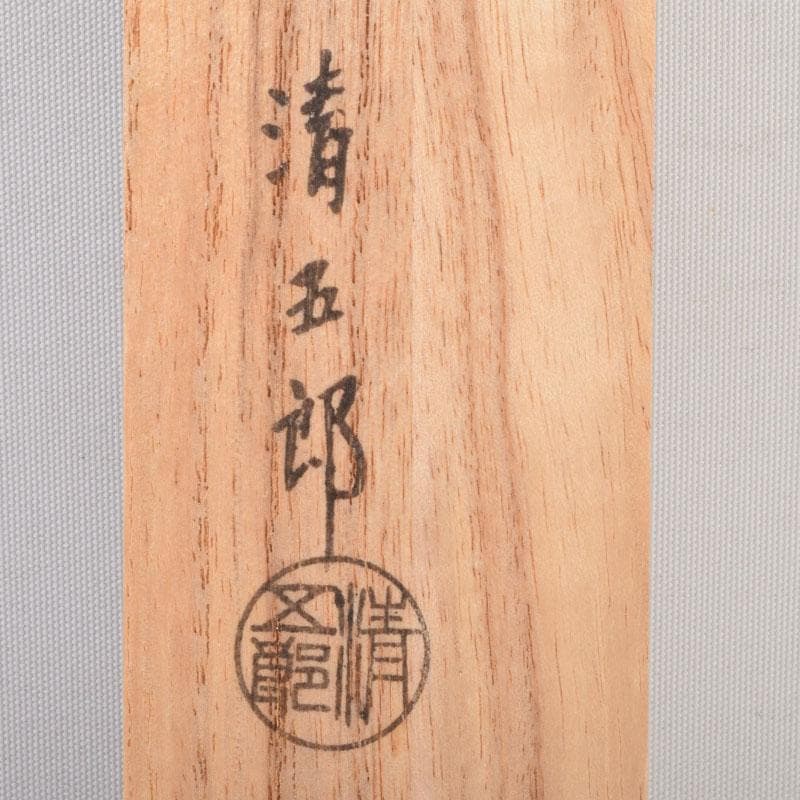 清五郎
清
五郎